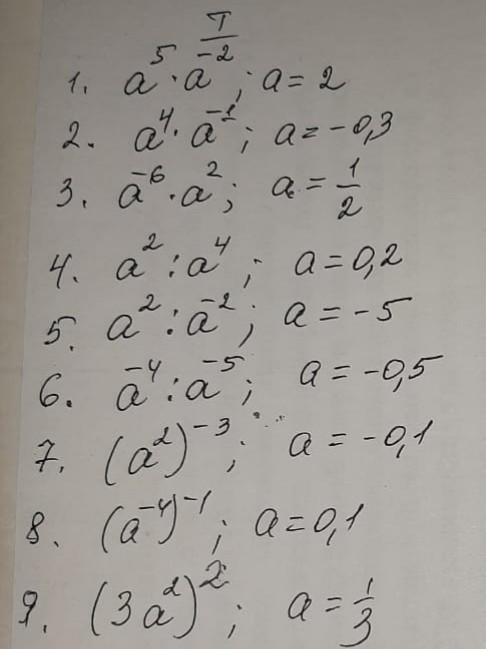 T
1. a⁵ · a⁻²; a = 2
2. a⁴ · a⁻¹; a = -0,3
3. a⁻⁶ · a²; a = 1/2
4. a² : a⁴; a = 0,2
5. a² : a⁻²; a = -5
6. a⁻⁴ : a⁻⁵; a = -0,5
7. (a²)⁻³; a = -0,1
8. (a⁻⁴)⁻¹; a = 0,1
9. (3a²)²; a = 1/3